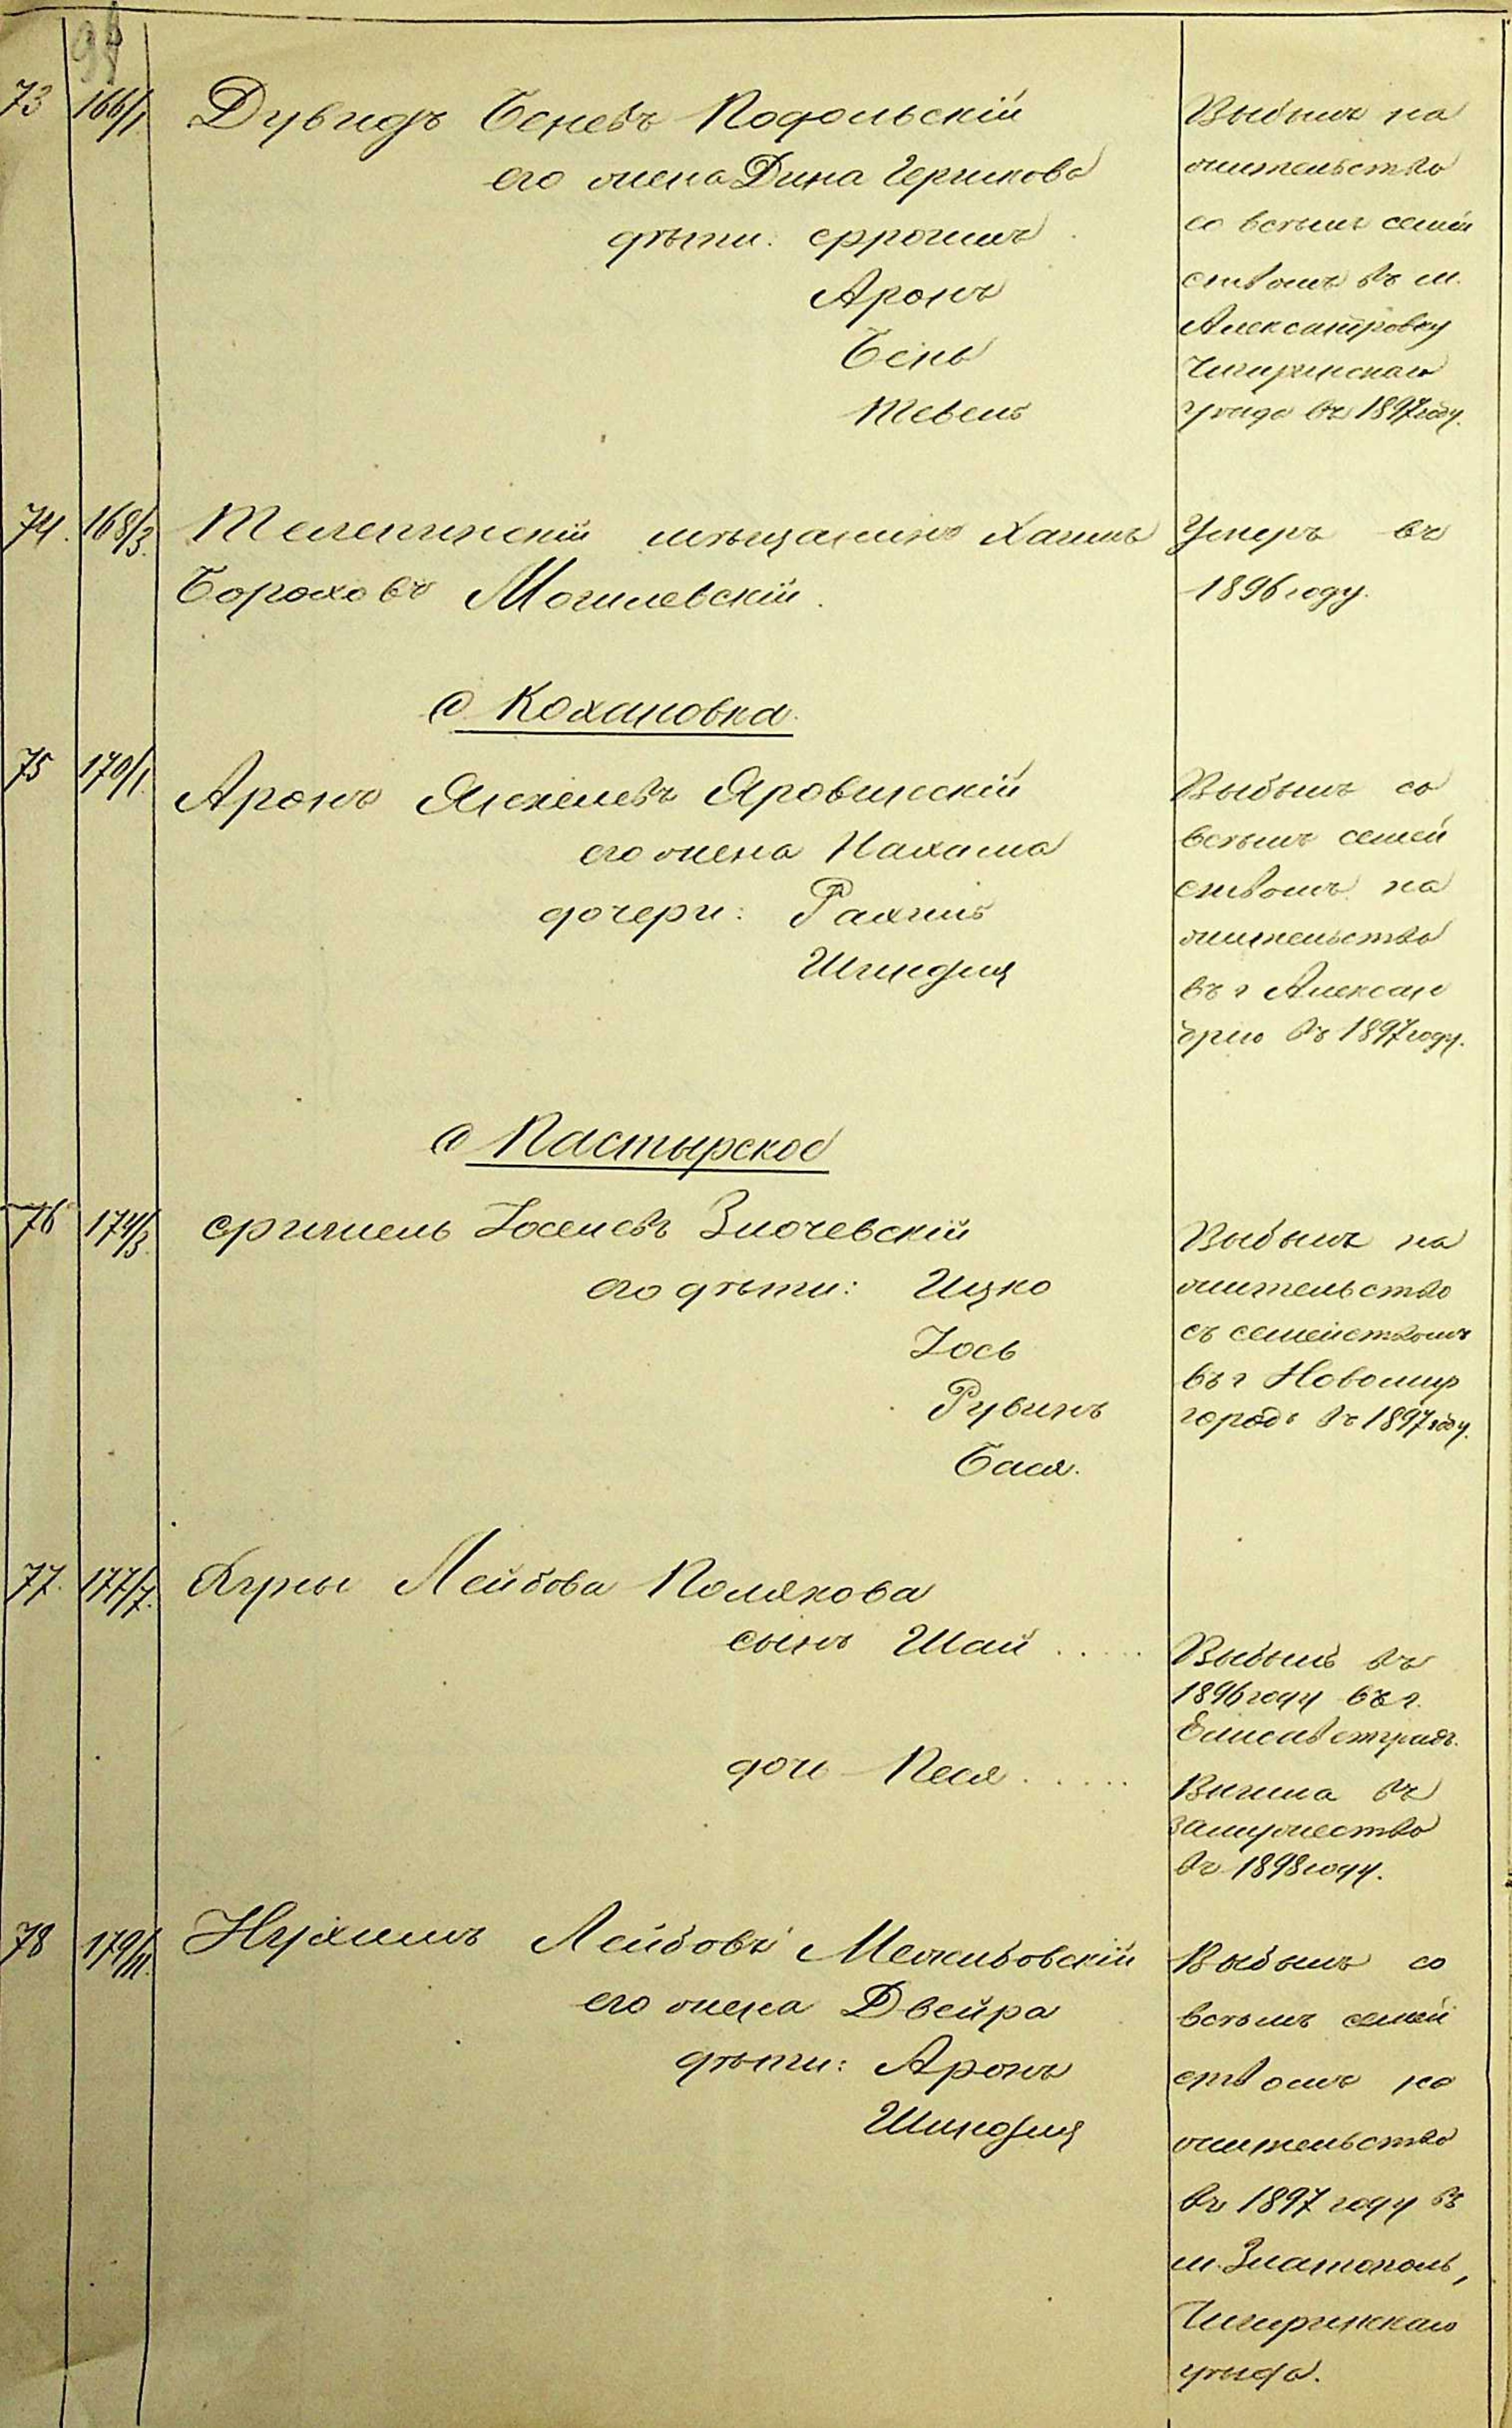 98
73 166/1 Дувидъ Беневъ Подольскій
его жена Дина Гершкова
дѣти: Фроимъ
Аронъ
Бень
Тевель
Выбылъ на
жительство
со всѣмъ семей
ствомъ въ м.
Александровку
Чигиринскаго
уѣзда въ 1897 году.
74. 168/3. Телепинскій мѣщанинъ Хаимъ
Бороховъ Могилевскій.
Умеръ въ
1896 году.
с Кохановка.
75 170/1. Аронъ Яскелевъ Яровинскій
его жена Нахама
дочери: Рахиль
Шиндля
Выбылъ со
всѣмъ семей
ствомъ на
жительство
въ г Алексан
дрію въ 1897 году.
с Пастырское
76 174/3. Фишель Іоселевъ Злочевскій
его дѣти: Ицко
Іось
Рувинъ
Бася.
Выбылъ на
жительство
съ семействомъ
въ г Новомир
городъ въ 1897 году.
77. 177/7. Лейбова Полякова
сынъ Шай . . . . .
Выбылъ въ
1896 году въ г.
Елисаветградъ.
дочь Песя . . . . .
Вышла въ
замужество
въ 1898 году.
78 179/11. Нухимъ Лейбовъ Межибовскій
его жена Двейра
дѣти: Аронъ
Шиндля
Выбылъ со
всѣмъ семей
ствомъ на
жительство
въ 1897 году въ
м. Златополь,
Чигиринскаго
уѣзда.